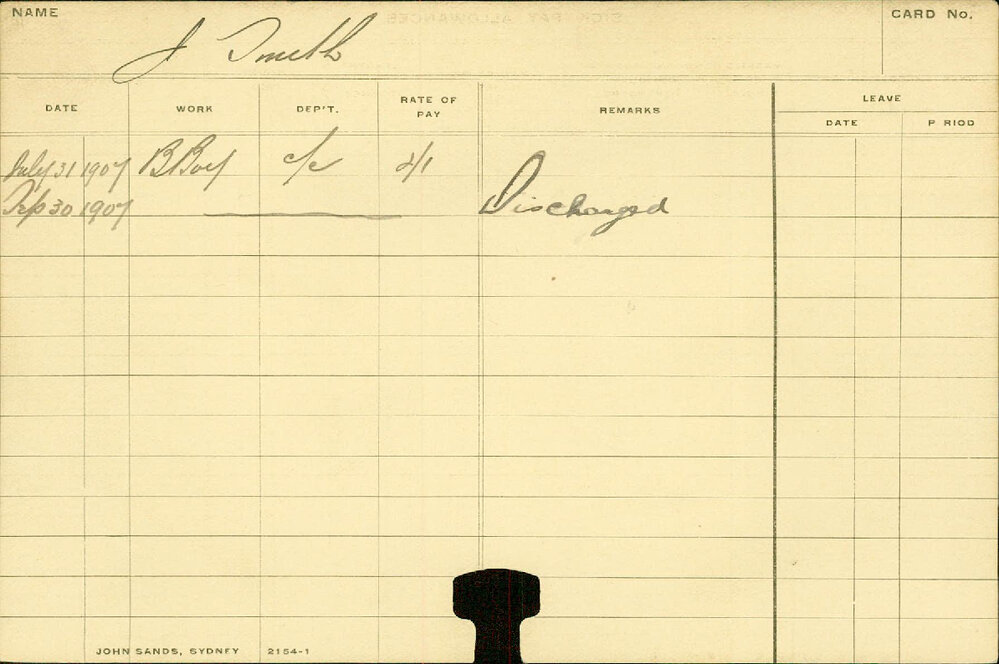 NAME J Smith CARD No.
DATE WORK DEP'T. RATE OF PAY REMARKS LEAVE
DATE P RIOD
July 31 1907 B Boy c/c 2/1
Sep 30 1907 Discharged
JOHN SANDS, SYDNEY 2154-1